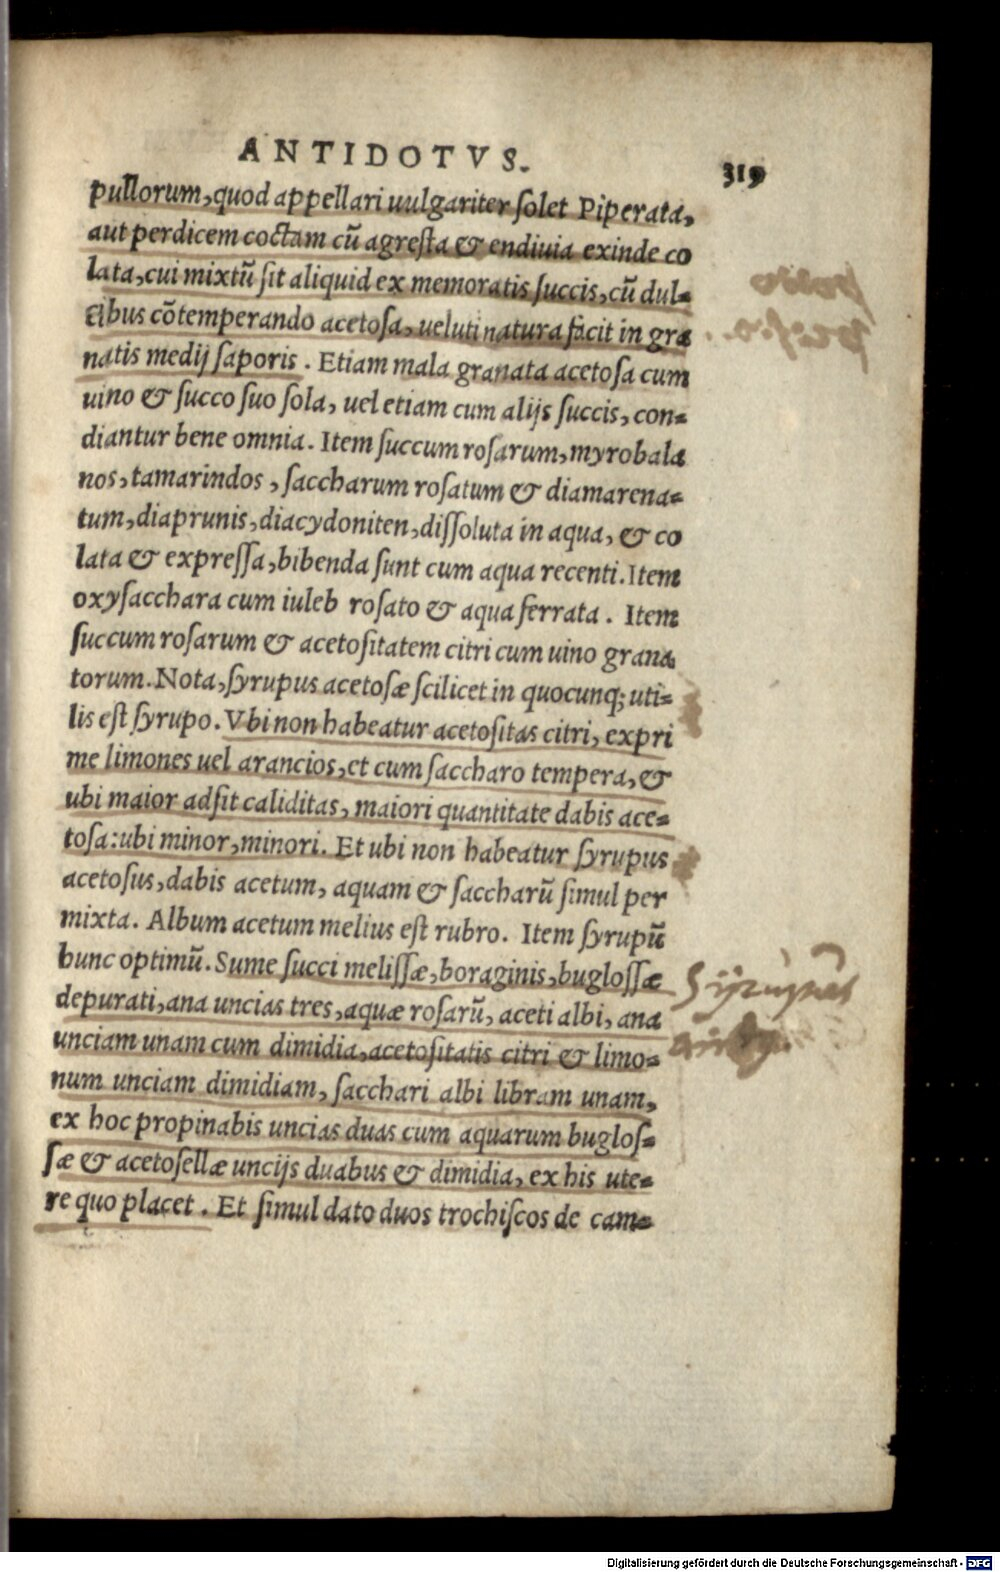 ANTIDOTVS. 319
pullorum, quod appellari uulgariter ſolet Piperata,
aut perdicem coctam cū agreſta & endiuia exinde co
lata, cui mixtū ſit aliquid ex memoratis ſuccis, cū dul-
cibus cōtemperando acetoſa, ueluti natura facit in gra
natis medij ſaporis. Etiam mala granata acetoſa cum
uino & ſucco ſuo ſola, uel etiam cum alijs ſuccis, con-
diantur bene omnia. Item ſuccum roſarum, myrobala
nos, tamarindos, ſaccharum roſatum & diamarena-
tum, diaprunis, diacydoniten, diſſoluta in aqua, & co
lata & expreſſa, bibenda ſunt cum aqua recenti. Item
oxyſacchara cum iuleb roſato & aqua ferrata. Item
ſuccum roſarum & acetoſitatem citri cum uino grana
torum. Nota, ſyrupus acetoſæ ſcilicet in quocunq; uti-
lis eſt ſyrupo. Vbi non habeatur acetoſitas citri, expri
me limones uel arancios, et cum ſaccharo tempera, &
ubi maior adſit caliditas, maiori quantitate dabis ace-
toſa: ubi minor, minori. Et ubi non habeatur ſyrupus
acetoſus, dabis acetum, aquam & ſaccharū ſimul per
mixta. Album acetum melius eſt rubro. Item ſyrupū
hunc optimū. Sume ſucci meliſſæ, boraginis, bugloſſæ
depurati, ana uncias tres, aquæ roſarū, aceti albi, ana
unciam unam cum dimidia, acetoſitatis citri & limo-
num unciam dimidiam, ſacchari albi libram unam,
ex hoc propinabis uncias duas cum aquarum bugloſ-
ſæ & acetoſellæ uncijs duabus & dimidia, ex his ute-
re quo placet. Et ſimul dato duos trochiſcos de cam-
Digitalisierung gefördert durch die Deutsche Forschungsgemeinschaft - DFG